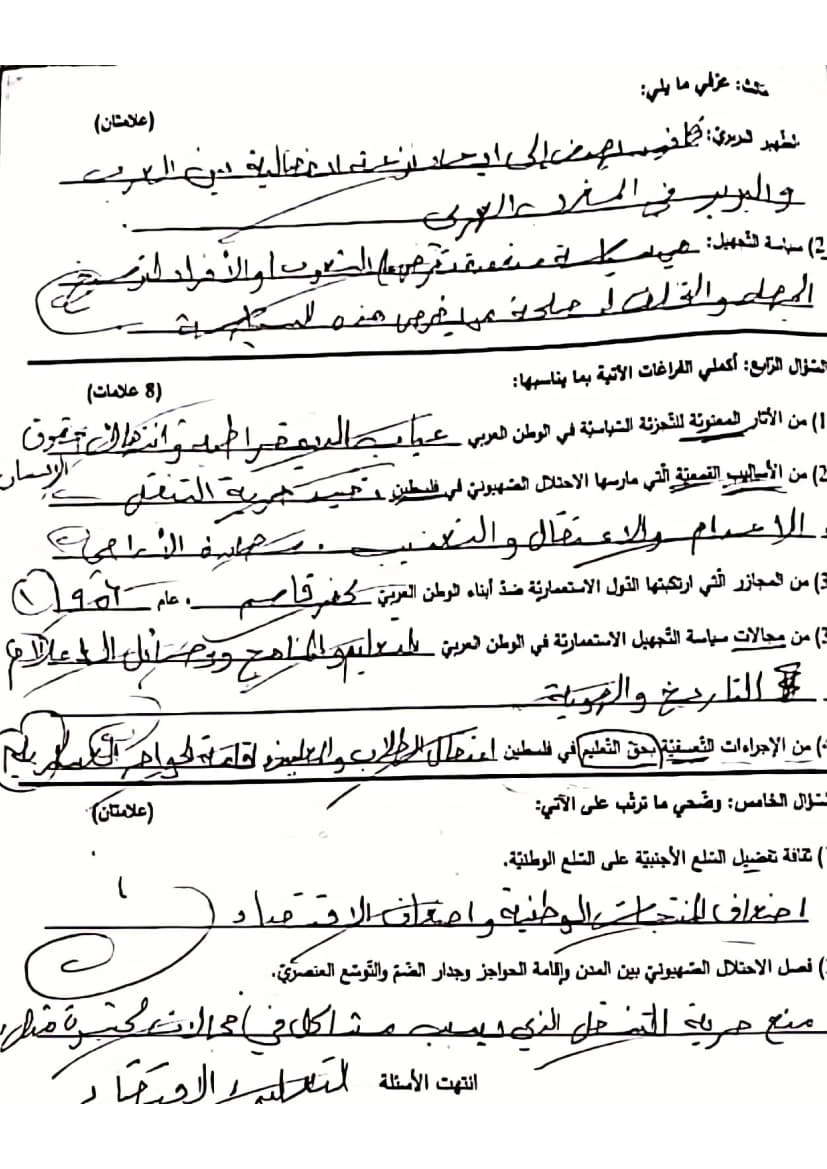 ثالث: عرفي ما يلي:
(علامتان)
الظهير البربري: يهدف إلى ايجاد نزعة انفصالية بين العرب
والبربر في المغرب العربي
2) سياسة التجهيل: هي سياسة تفرض على الشعوب او الأفراد لترسيخ
الجهل والتخلف لمصلحة من يفرض هذه السياسة
السؤال الرابع: أكملي الفراغات الآتية بما يناسبها: (8 علامات)
1) من الآثار المعنوية للتجزئة السياسية في الوطن العربي غياب الديمقراطية وانتهاك حقوق
الإنسان
2) من الأساليب القمعية التي مارسها الاحتلال الصهيوني في فلسطين، تقييد حرية التنقل
الاعدام والاعتقال والتعذيب. مصادرة الأراضي
3) من المجازر التي ارتكبتها الدول الاستعمارية ضد أبناء الوطن العربي كفر قاسم. عام ١٩٥٦
3) من مجالات سياسة التجهيل الاستعمارية في الوطن العربي التعليم والمناهج ووسائل الاعلام
التاريخ والهوية
من الإجراءات التعسفية بحق التعليم في فلسطين اعتقال الطلاب والمعلمين اقامة الحواجز
السؤال الخامس: وضحي ما ترتب على الآتي: (علامتان)
) ثقافة تفضيل السلع الأجنبية على السلع الوطنية.
اضعاف المنتجات الوطنية واضعاف الاقتصاد
) فصل الاحتلال الصهيوني بين المدن وإقامة الحواجز وجدار الضم والتوسع العنصري.
منع حرية التنقل الذي يسبب مشاكل في مجالات كثيرة مثل
التعليم الاقتصاد
انتهت الأسئلة